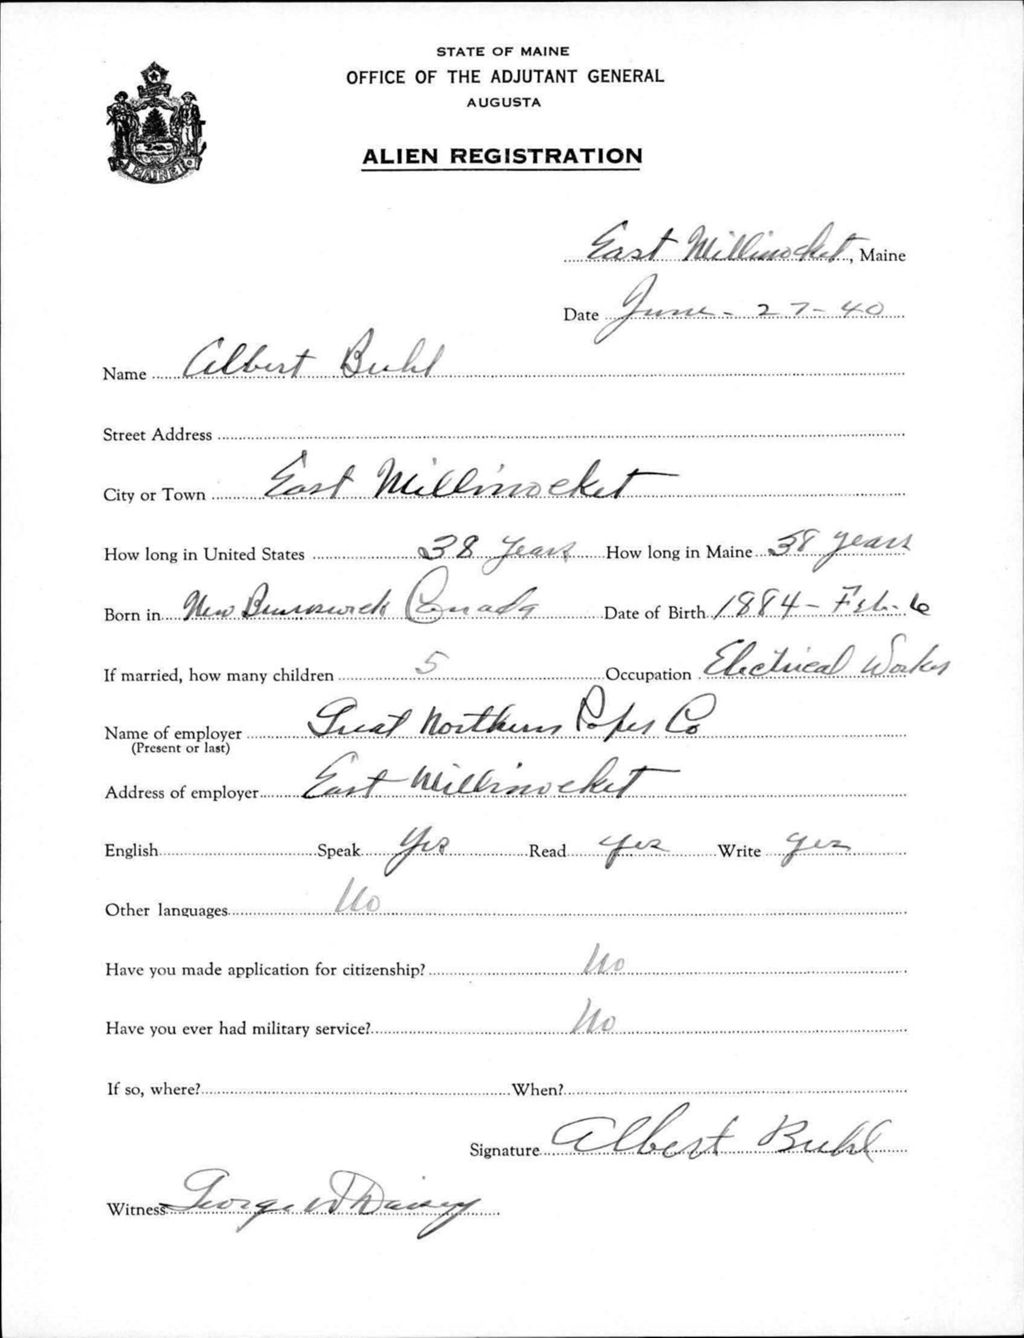 STATE OF MAINE
OFFICE OF THE ADJUTANT GENERAL
AUGUSTA
ALIEN REGISTRATION
MAINE
East Millinocket, Maine
Date June - 27 - 40
Name Albert Buhl
Street Address
City or Town East Millinocket
How long in United States 38 years How long in Maine 38 years
Born in New Brunswick Canada Date of Birth 1884 - Feb. 6
If married, how many children 5 Occupation Electrical Worker
Name of employer Great Northern Paper Co
(Present or last)
Address of employer East Millinocket
English Speak Yes Read yes Write yes
Other languages No
Have you made application for citizenship? No
Have you ever had military service? No
If so, where? When?
Signature Albert Buhl
Witness George W